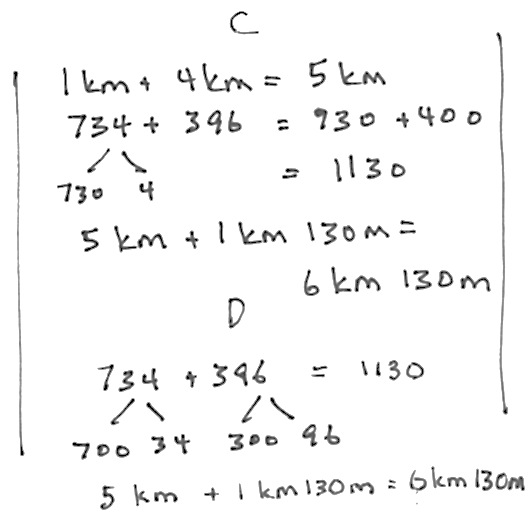 C
1 km + 4 km = 5 km
734 + 396 = 930 + 400
730 4 = 1130
5 km + 1 km 130 m =
6 km 130 m
D
734 + 396 = 1130
700 34 300 96
5 km + 1 km 130 m = 6 km 130 m